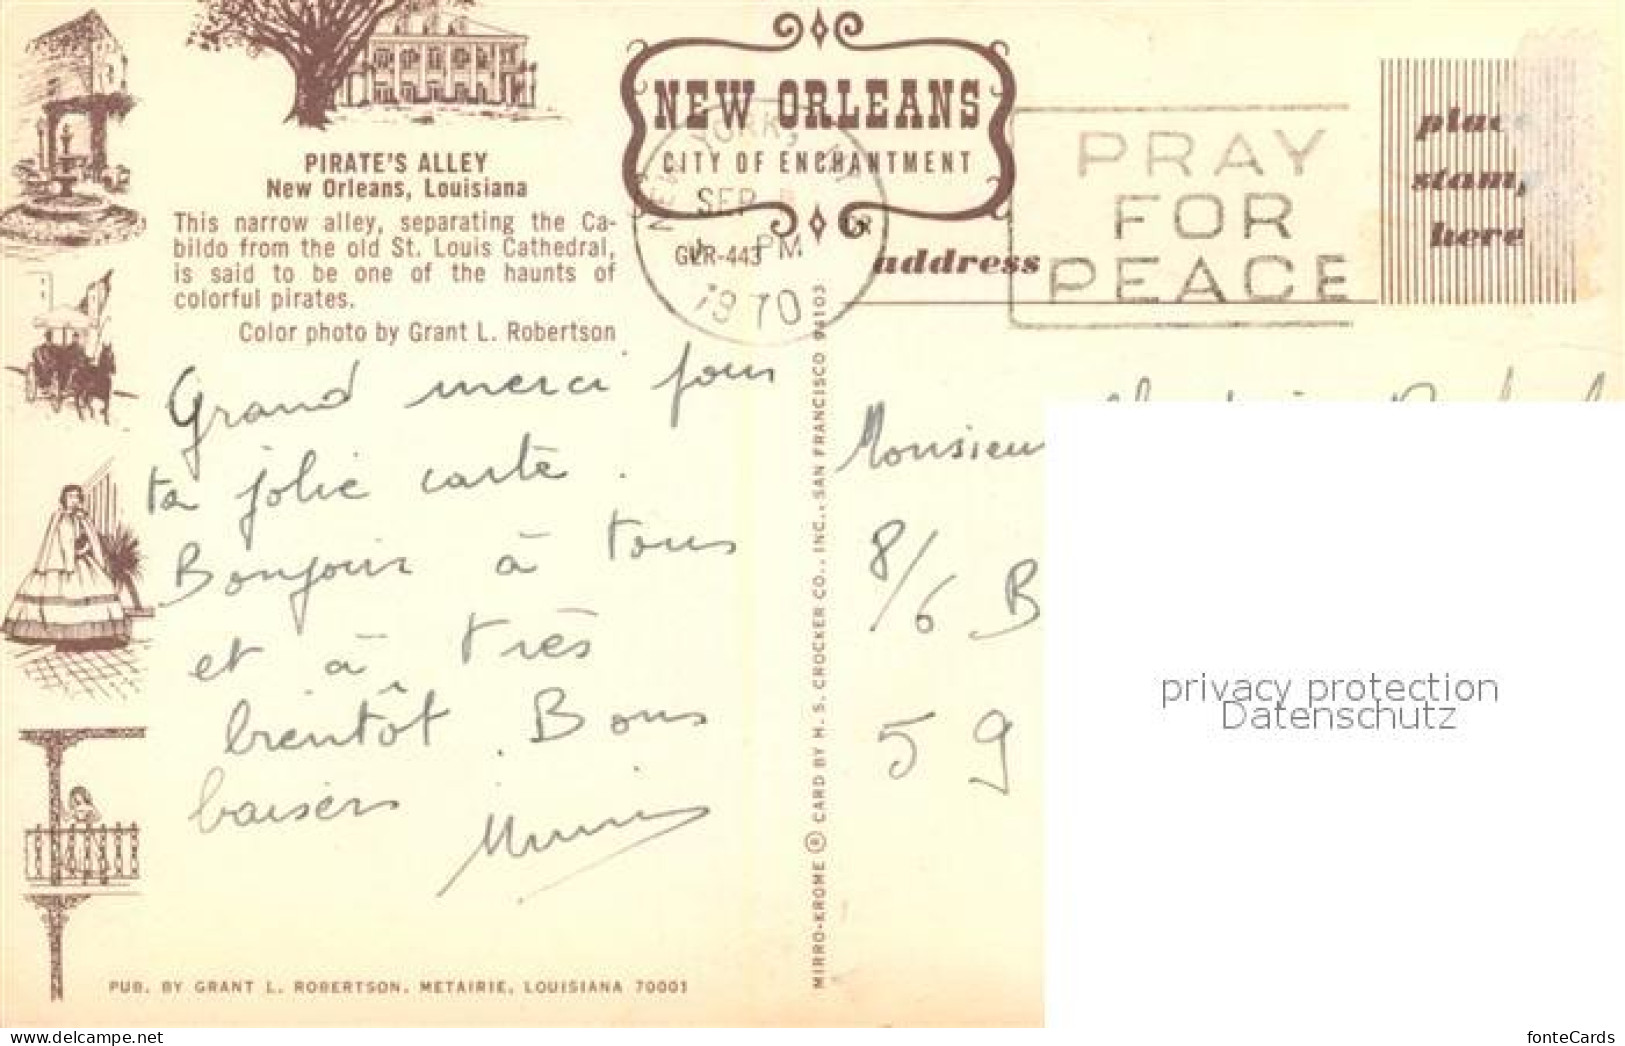 NEW ORLEANS
CITY OF ENCHANTMENT
PIRATE'S ALLEY
New Orleans, Louisiana
This narrow alley, separating the Ca-
bildo from the old St. Louis Cathedral,
is said to be one of the haunts of
colorful pirates.
Color photo by Grant L. Robertson
NEW YORK,
SEP
PM
1970
GLR-443
PRAY
FOR
PEACE
place
stamp
here
address
Grand merci pour
ta jolie carte.
Bonjour à tous
et à très
bientôt. Bons
baisers
Monsieur
8/6 B
59
MIRRO-KROME ® CARD BY H. S. CROCKER CO., INC., SAN FRANCISCO 94103
PUB. BY GRANT L. ROBERTSON, METAIRIE, LOUISIANA 70001
privacy protection
Datenschutz
www.delcampe.net
fonteCards